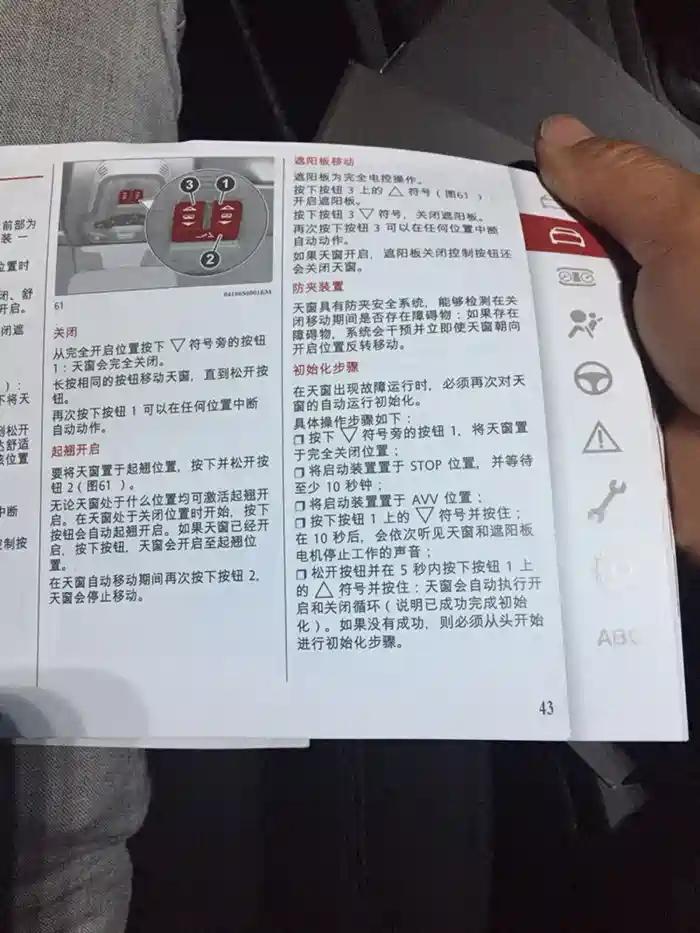 前部为
装 一
位置时
闭、舒
开启。
闭遮
）：
下将天
到松开
达舒适
该位置
中断
控制按
3
1
2
61
关闭
从完全开启位置按下 ▽ 符号旁的按钮
1：天窗会完全关闭。
长按相同的按钮移动天窗，直到松开按
钮。
再次按下按钮 1 可以在任何位置中断
自动动作。
起翘开启
要将天窗置于起翘位置，按下并松开按
钮 2（图61 ）。
无论天窗处于什么位置均可激活起翘开
启。在天窗处于关闭位置时开始，按下
按钮会自动起翘开启。如果天窗已经开
启，按下按钮，天窗会开启至起翘位
置。
在天窗自动移动期间再次按下按钮 2，
天窗会停止移动。
遮阳板移动
遮阳板为完全电控操作。
按下按钮 3 上的 △ 符号（图61 ）
开启遮阳板。
按下按钮 3 ▽ 符号，关闭遮阳板。
再次按下按钮 3 可以在任何位置中断
自动动作。
如果天窗开启，遮阳板关闭控制按钮还
会关闭天窗。
防夹装置
天窗具有防夹安全系统，能够检测在关
闭移动期间是否存在障碍物：如果存在
障碍物，系统会干预并立即使天窗朝向
开启位置反转移动。
初始化步骤
在天窗出现故障运行时，必须再次对天
窗的自动运行初始化。
具体操作步骤如下：
❒ 按下 ▽ 符号旁的按钮 1，将天窗置
于完全关闭位置；
❒ 将启动装置置于 STOP 位置，并等待
至少 10 秒钟；
❒ 将启动装置置于 AVV 位置；
❒ 按下按钮 1 上的 ▽ 符号并按住；
在 10 秒后，会依次听见天窗和遮阳板
电机停止工作的声音；
❒ 松开按钮并在 5 秒内按下按钮 1 上
的 △ 符号并按住：天窗会自动执行开
启和关闭循环（说明已成功完成初始
化）。如果没有成功，则必须从头开始
进行初始化步骤。
43
ABC